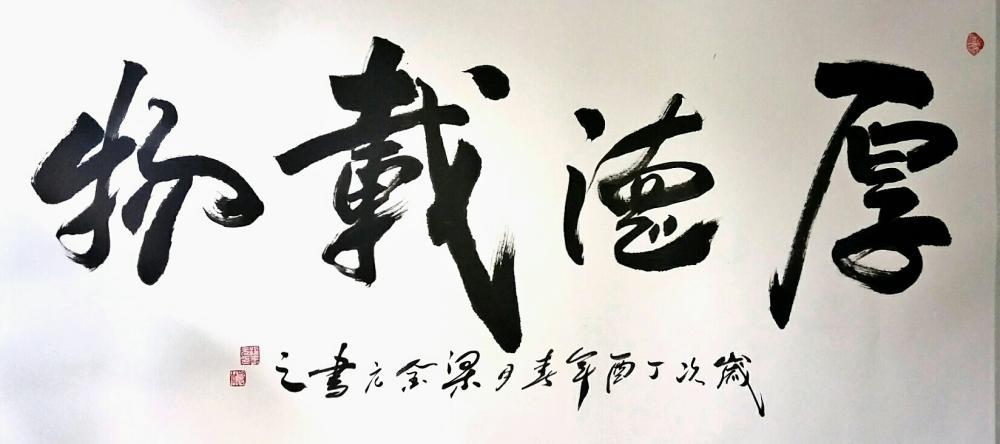 厚德載物
歲次丁酉年春月梁金元書之